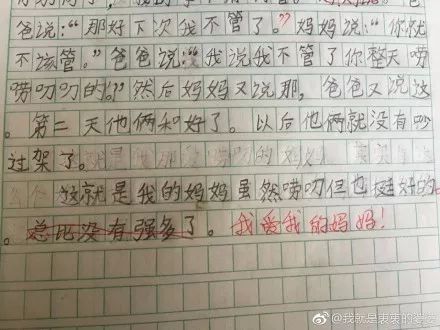 爸说:“那好下次我不管了。”妈妈说:“你就
不该管。”爸爸说:“我说我不管了你整天唠
唠叨叨的。”然后妈妈又说那,爸爸又说这
。第二天他俩和好了。以后他俩就没有吵
过架了。
这就是我的妈妈虽然唠叨但也挺好的
。总比没有强多了。我爱我的妈妈!
@我就是衷衷的婆婆